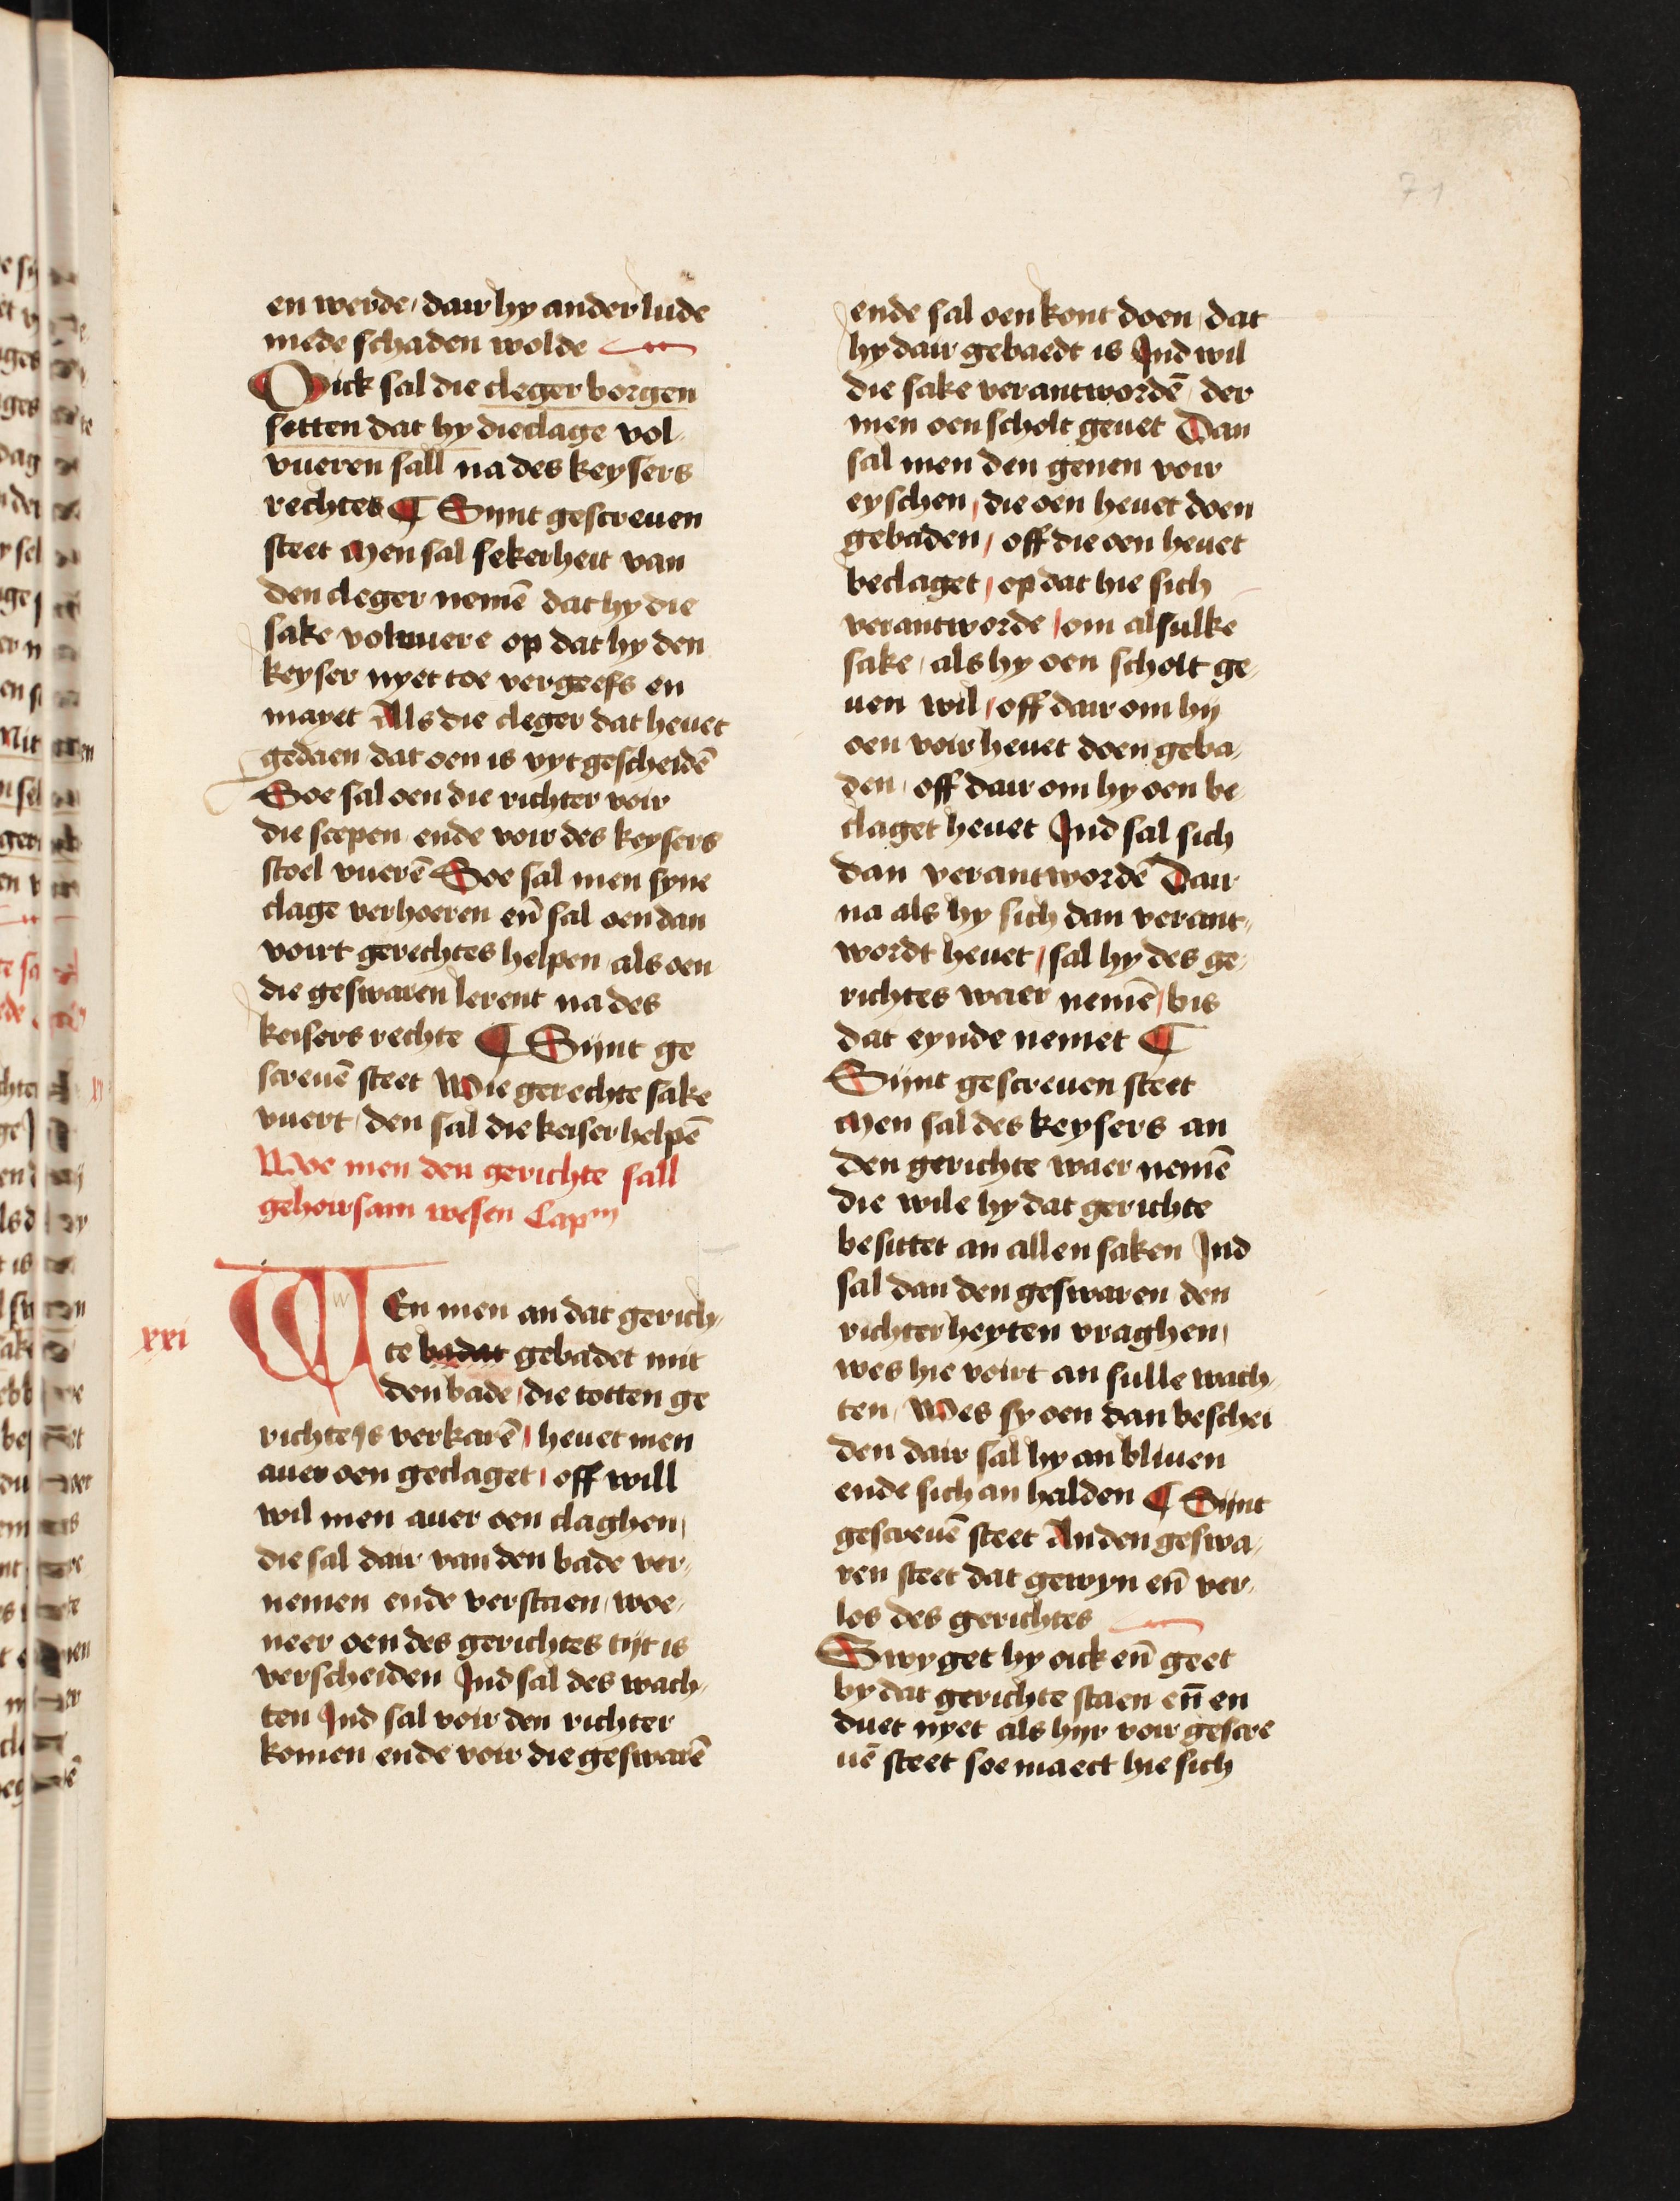 71
en werde / dair hy ander lude
mede schaden wolde
Oick sal die cleger borgen
setten dat hy die clage vol-
vueren sall na des keysers
rechtes ¶ Sijnt gescreuen
steet Men sal sekerheit van
den cleger nemē dat hy die
sake voluuere op dat hy den
keyser nyet toe vergeefs en
mayet Als die cleger dat heuet
gedaen / dat oen is vyt gescheidē
Soe sal oen die richter voir
die scepen / ende voir des keysers
stoel vuerē Soe sal men syne
clage verhoeren eñ sal oen dan
voirt gerechtes helpen / als oen
die geswaren lerent na des
keisers rechte ¶ Sijnt ge
screuē steet Wie gerechte sake
vuert / den sal die keiser helpē
Woe men den gerichte sall
gehoirsam wesen Capm
xxi
WEn men an dat gerich-
te badat gebadet mit
den bade / die totten ge
richte is verkarē / heuet men
auer oen geclaget / off will
wil men auer oen claghen /
die sal dair van den bade ver-
nemen ende verstaen / woe-
neer oen des gerichtes tijt is
verscheiden Ind sal des wach-
ten Ind sal voir den richter
komen ende voir die geswarē
ende sal oen kont doen / dat
hy dair gebaedt is Ind wil
die sake verantwordē / der
men oen scholt geuet Dan
sal men den genen voir
eyschen / die oen heuet doen
gebaden / off die oen heuet
beclaget / op dat hie sich
verantworde / om alsulke
sake / als hy oen scholt ge-
uen wil / off dair om hij
oen voir heuet doen geba-
den / off dair om hy oen be-
claget heuet Ind sal sich
dan verantwordē Dair
na als hy sich dan verant-
wordt heuet / sal hy des ge-
richtes waer nemē / bis
dat eynde nemet ¶
Sijnt gescreuen steet
Men sal des keysers an
den gerichte waer nemē
die wile hy dat gerichte
besittet an allen saken Ind
sal dan den geswaren den
richter heyten vraghen /
wes hie voirt an sulle wach-
ten / Wes sy oen dan beschei
den dair sal hy an bliuen
ende sich an halden ¶ Sijnt
gescreuē steet An den geswa-
ren steet dat gewyn eñ ver-
los des gerichtes
Swyget hy oick eñ geet
by dat gerichte staen eñ en
duet nyet als hijr voir gescre
uē steet soe maect hie sich